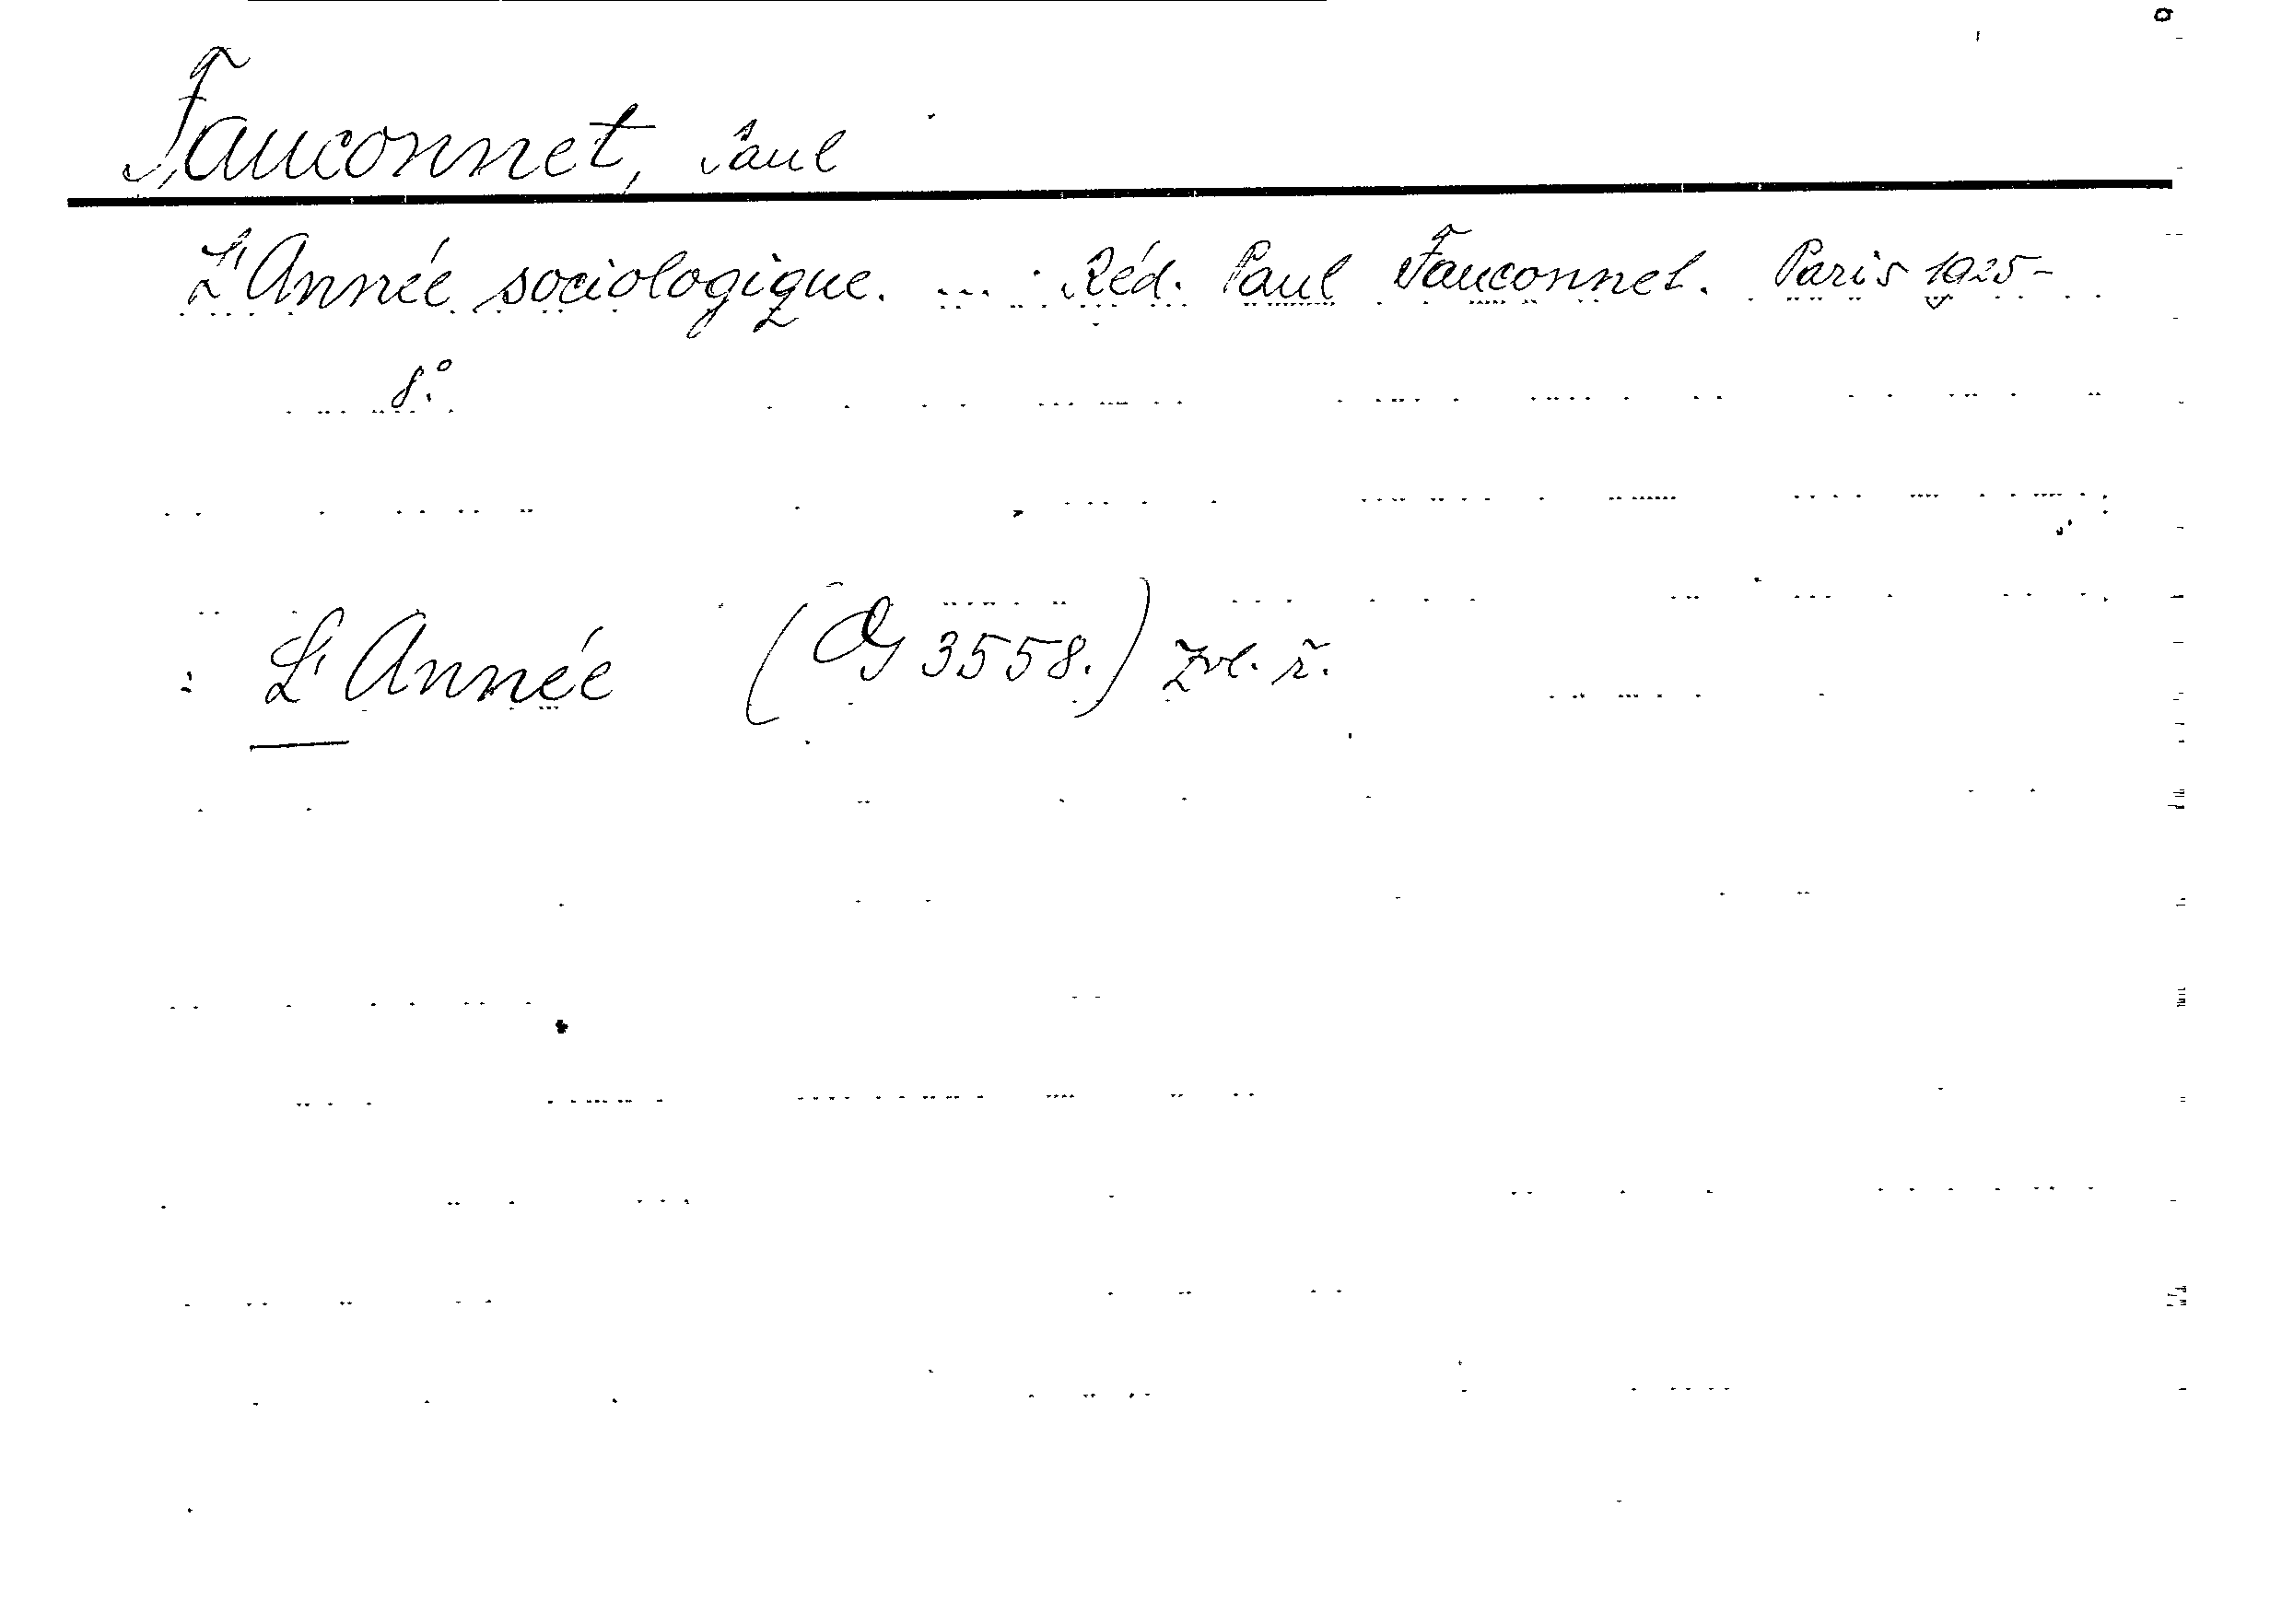 Fauconnet, Paul
L'Année sociologique. ... Réd. Paul Fauconnet. Paris 1925-
8°.
: L'Année (Og 3558.) zvl. ř.